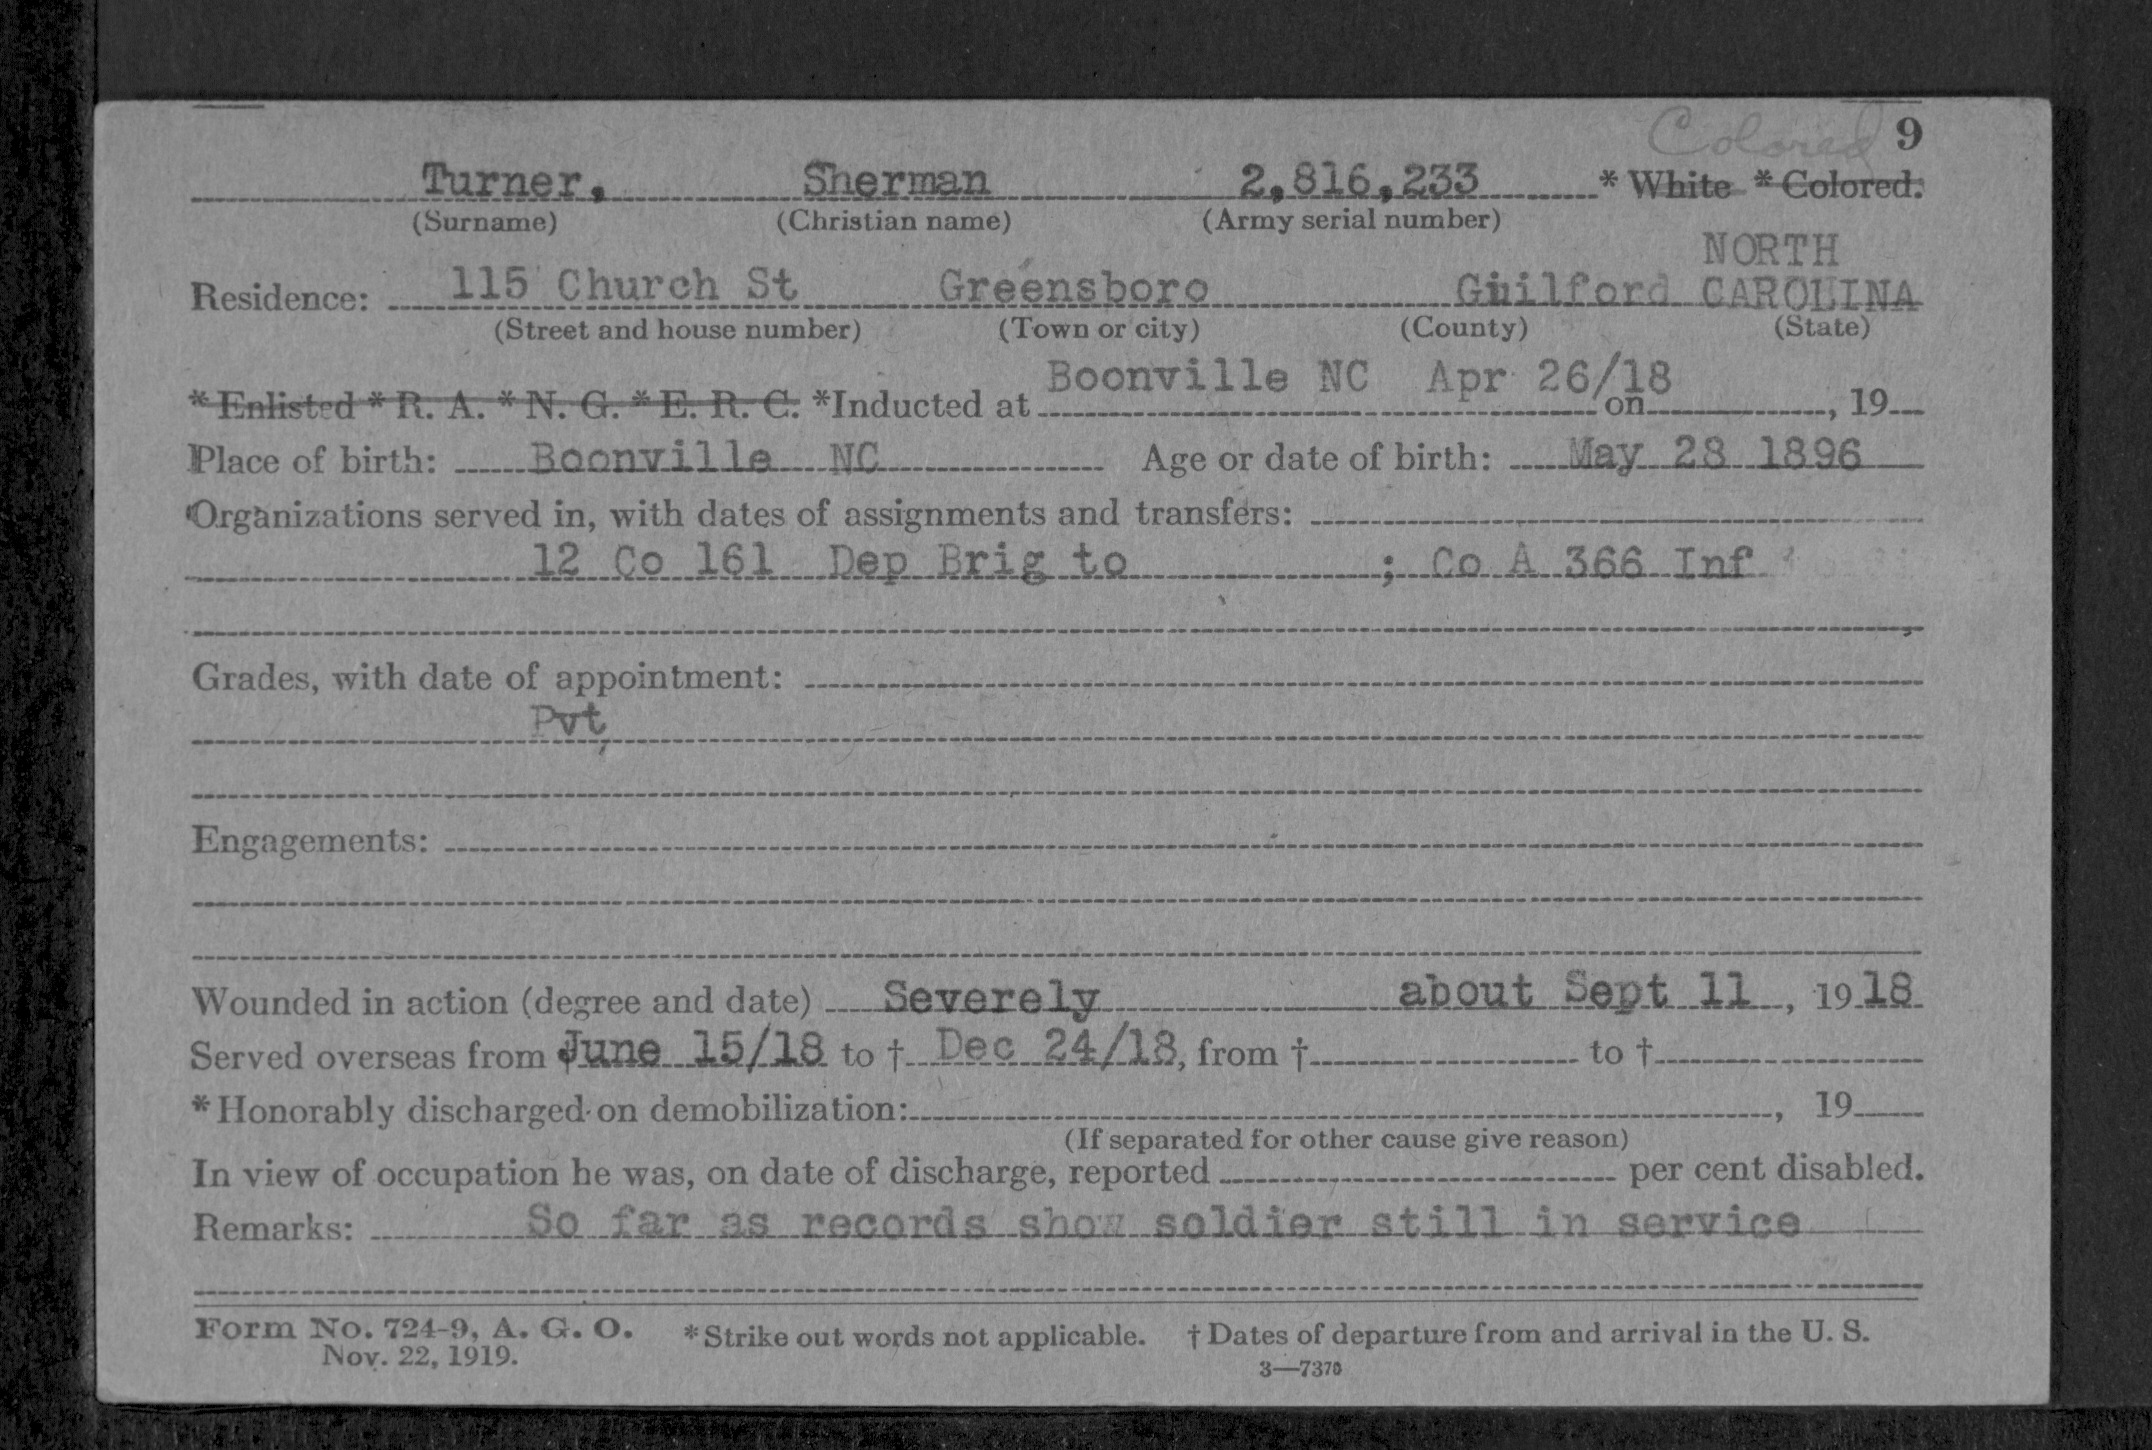 Colored 9
Turner, Sherman 2,816,233 * White * Colored.
(Surname) (Christian name) (Army serial number)
NORTH
Residence: 115 Church St Greensboro Guilford CAROLINA
(Street and house number) (Town or city) (County) (State)
Boonville NC Apr 26/18
* Enlisted * R. A. * N. G. * E. R. C. *Inducted at on , 19
Place of birth: Boonville NC Age or date of birth: May 28 1896
Organizations served in, with dates of assignments and transfers:
12 Co 161 Dep Brig to ; Co A 366 Inf
Grades, with date of appointment:
Pvt
Engagements:
Wounded in action (degree and date) Severely about Sept 11 , 1918
Served overseas from June 15/18 to † Dec 24/18, from † to †
* Honorably discharged on demobilization: , 19
(If separated for other cause give reason)
In view of occupation he was, on date of discharge, reported per cent disabled.
Remarks: So far as records show soldier still in service
Form No. 724-9, A. G. O. * Strike out words not applicable. † Dates of departure from and arrival in the U. S.
Nov. 22, 1919. 3—7370